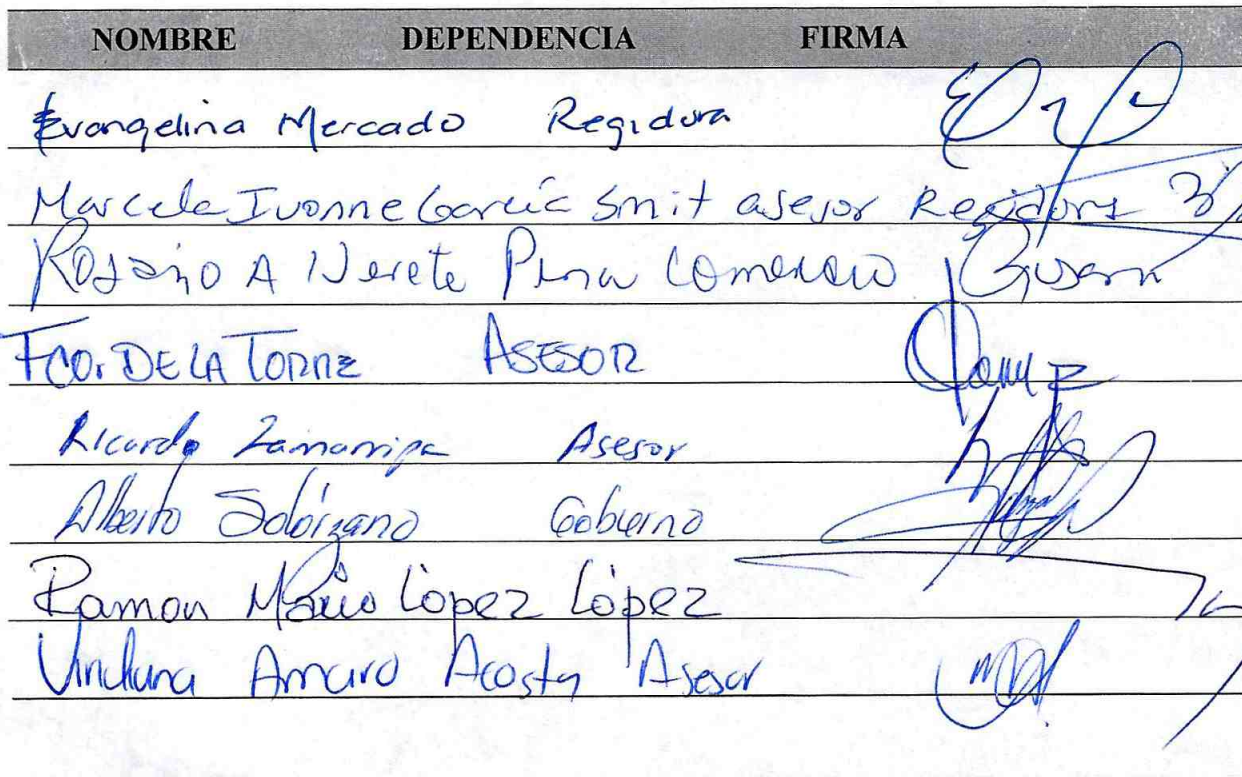 NOMBRE DEPENDENCIA FIRMA
Evangelina Mercado Regidora
Marcela Ivonne García Smit asesor Regidora
A Comercio
FCO. DE LA TORRE ASESOR
Ricardo Zamarripa Asesor
Alberto Solórzano Gobierno
Ramon Mario López López
Viridiana Amaro Acosta Asesor